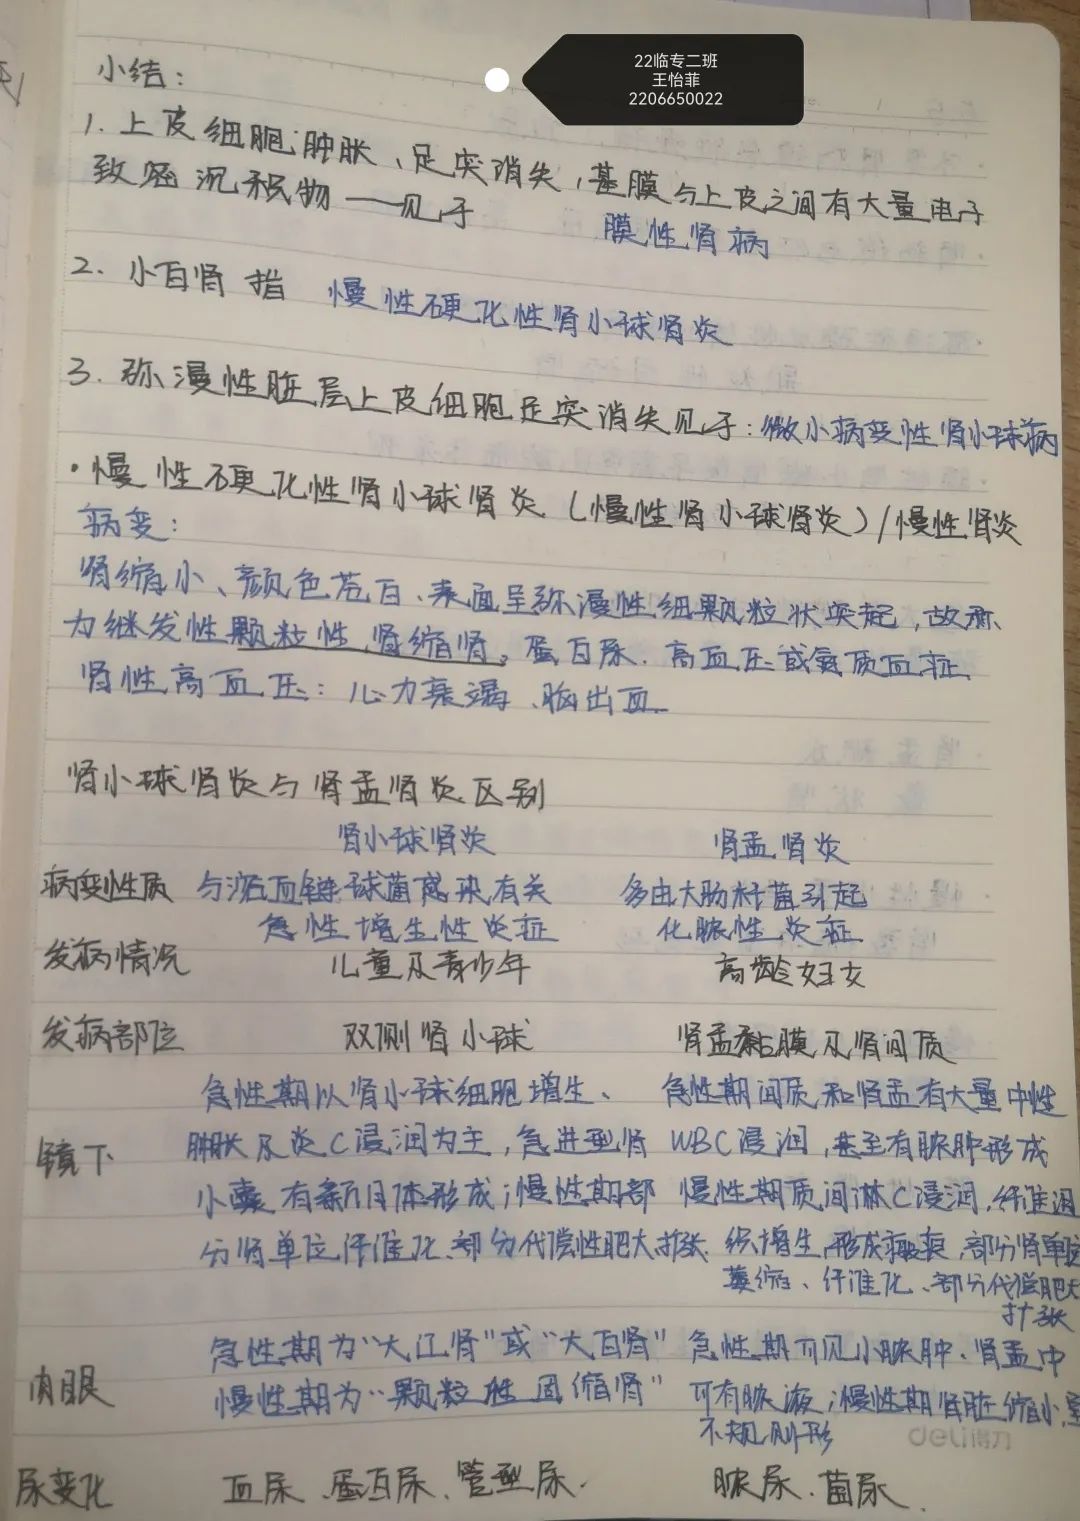 22临专二班
王怡菲
2206650022
小结：
1. 上皮细胞肿胀、足突消失，基膜与上皮之间有大量电子
致密沉积物——见于
膜性肾病
2. 小白肾 指 慢性硬化性肾小球肾炎
3. 弥漫性脏层上皮细胞足突消失见于：微小病变性肾小球病
·慢性硬化性肾小球肾炎（慢性肾小球肾炎）/慢性肾炎
病变：
肾缩小、颜色苍白、表面呈弥漫性细颗粒状突起，故称
为继发性颗粒性肾缩肾。蛋白尿．高血压或氮质血症
肾性高血压：心力衰竭、脑出血
肾小球肾炎与肾盂肾炎区别
肾小球肾炎 肾盂肾炎
病变性质 与溶血链球菌感染有关 多由大肠杆菌引起
急性增生性炎症 化脓性炎症
发病情况 儿童及青少年 高龄妇女
发病部位 双侧肾小球 肾盂黏膜及肾间质
急性期以肾小球细胞增生、 急性期间质和肾盂有大量中性
镜下 肿胀及炎C浸润为主，急进型肾 WBC浸润，甚至有脓肿形成
小囊有新月体形成；慢性期部 慢性期质间淋C浸润，纤维组
分肾单位纤维化、部分代偿性肥大扩张 织增生，形成瘢痕，部分肾单位
萎缩、纤维化、部分代偿肥大
扩张
急性期为“大红肾”或“大白肾” 急性期可见小脓肿、肾盂中
肉眼 慢性期为“颗粒性固缩肾” 可有脓液；慢性期肾脏缩小，呈
不规则形
deli得力
尿变化 血尿、蛋白尿、管型尿． 脓尿、菌尿．